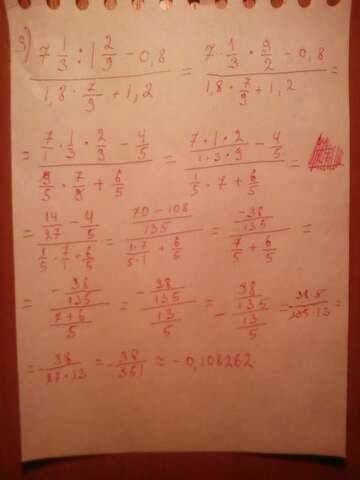 3) (7 1/3 : 1 2/9 − 0,8)/(1,8 · 7/9 + 1,2) = (7 · 1/3 : 9/2 − 0,8)/(1,8 · 7/9 + 1,2) =
= (7/1 · 1/3 · 2/9 − 4/5)/(9/5 · 7/9 + 6/5) = ((7·1·2)/(1·3·9) − 4/5)/(1/5 · 7 + 6/5) =
= (14/27 − 4/5)/(1/5 · 7/1 + 6/5) = ((70−108)/135)/((1·7)/(5·1) + 6/5) = (−38/135)/(7/5 + 6/5) =
= (−38/135)/((7+6)/5) = (−38/135)/(13/5) = −(38/135)/(13/5) = −(38·5)/(135·13) =
= −38/(27·13) = −38/351 ≈ −0,108262